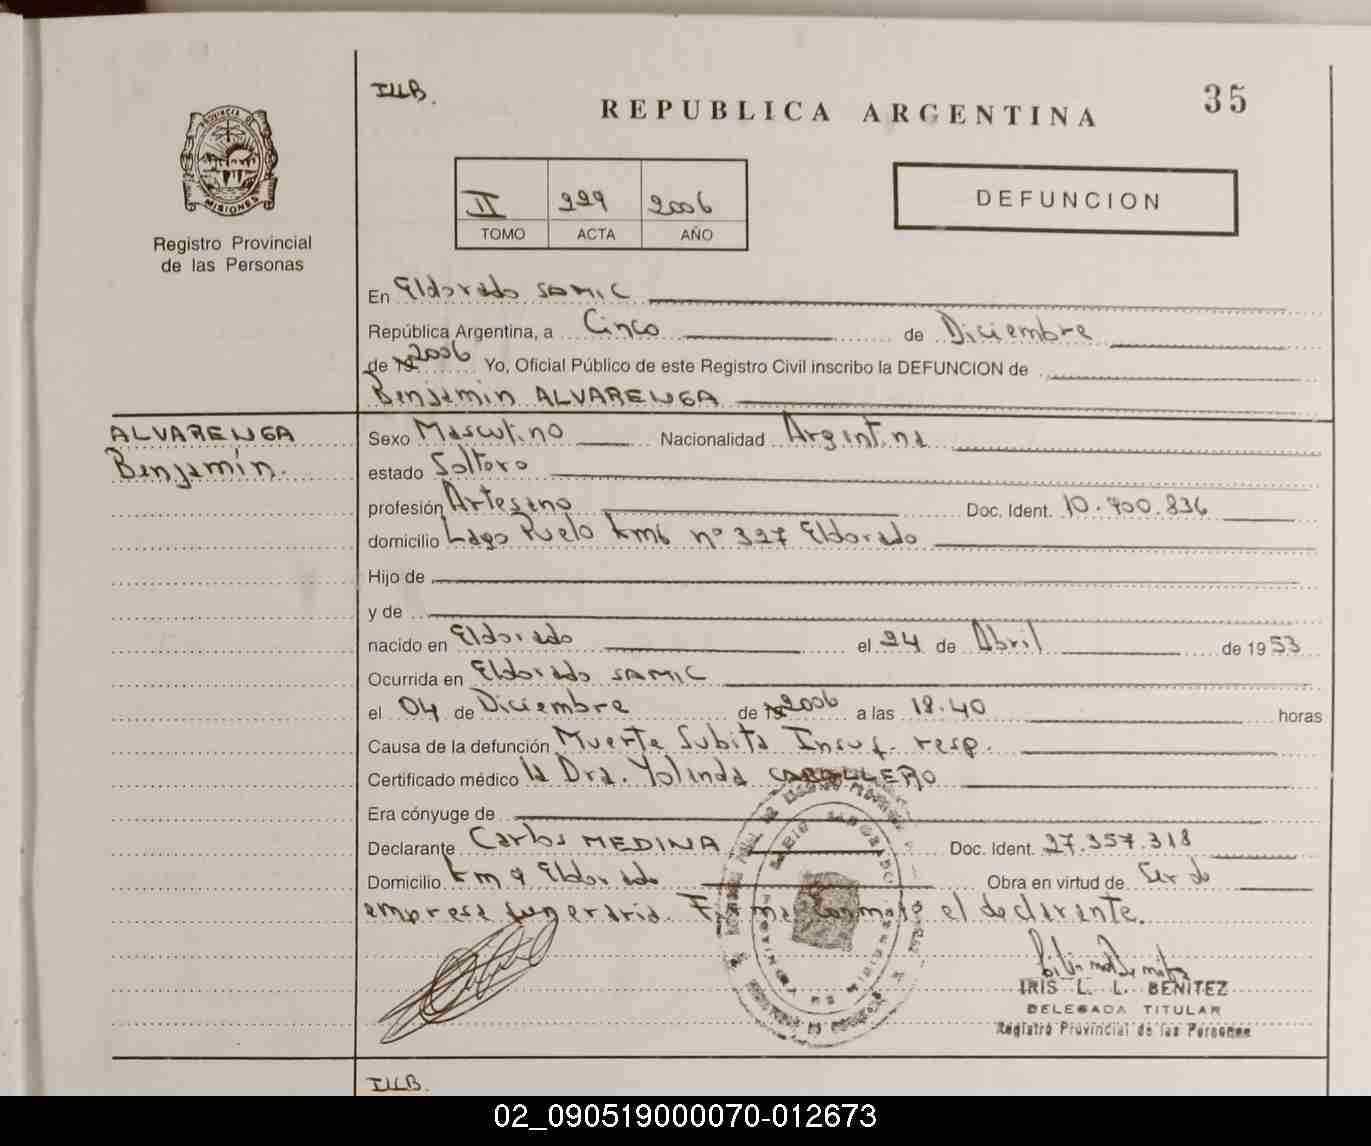 ILLB.
REPUBLICA ARGENTINA
35
PROVINCIA DE
MISIONES
Registro Provincial
de las Personas
II 229 2006
TOMO ACTA AÑO
DEFUNCION
En Eldorado SAMIC
República Argentina, a Cinco de Diciembre
de 19 2006 Yo, Oficial Público de este Registro Civil inscribo la DEFUNCION de
Benjamin ALVARENGA
ALVARENGA
Benjamín.
Sexo Masculino Nacionalidad Argentina
estado Soltero
profesión Artesano Doc. Ident. 10.900.836
domicilio Lago Puelo km6 nº 327 Eldorado
Hijo de
y de
nacido en Eldorado el 24 de Abril de 1953
Ocurrida en Eldorado SAMIC
el 04 de Diciembre de 19 2006 a las 18.40 horas
Causa de la defunción Muerte Subita Insuf. resp.
Certificado médico la Dra. Yolinda CABALLERO
Era cónyuge de
Declarante Carlos MEDINA Doc. Ident. 27.357.318
Domicilio km 9 Eldorado Obra en virtud de Ser de
empresa funeraria. Firma conmigo el declarante.
IRIS L. L. BENITEZ
DELEGADA TITULAR
Registro Provincial de las Personas
ILLB.
02_090519000070-012673